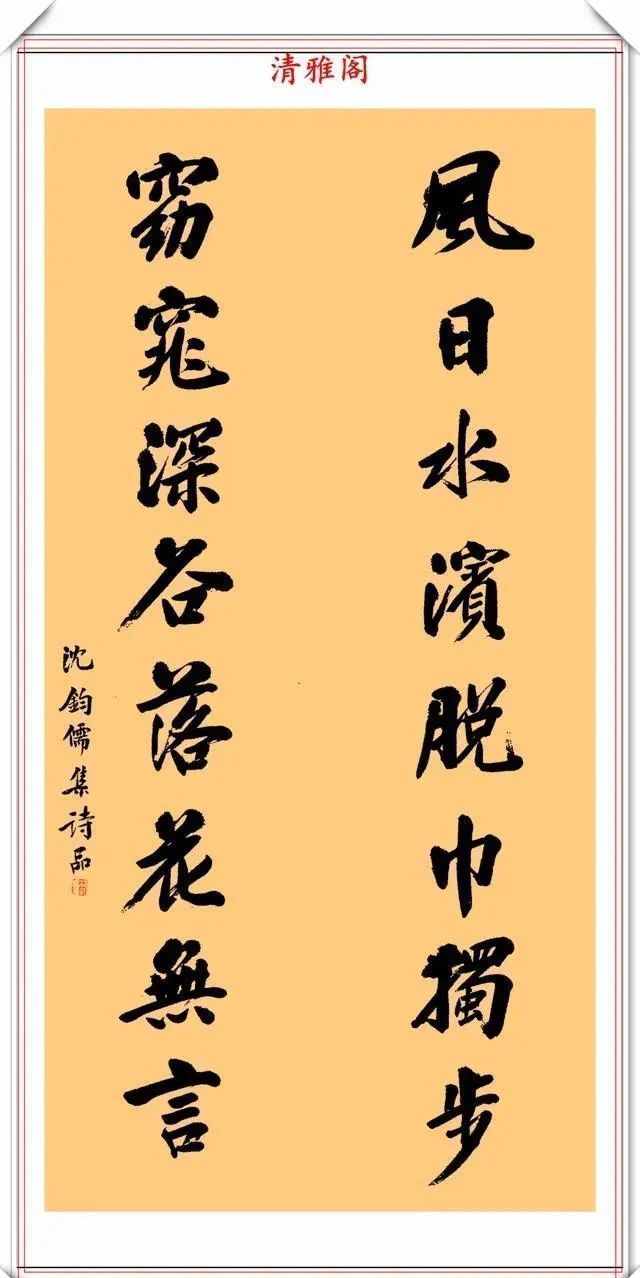 清雅阁
風日水濱脫巾獨步
窈窕深谷落花無言
沈鈞儒集诗品